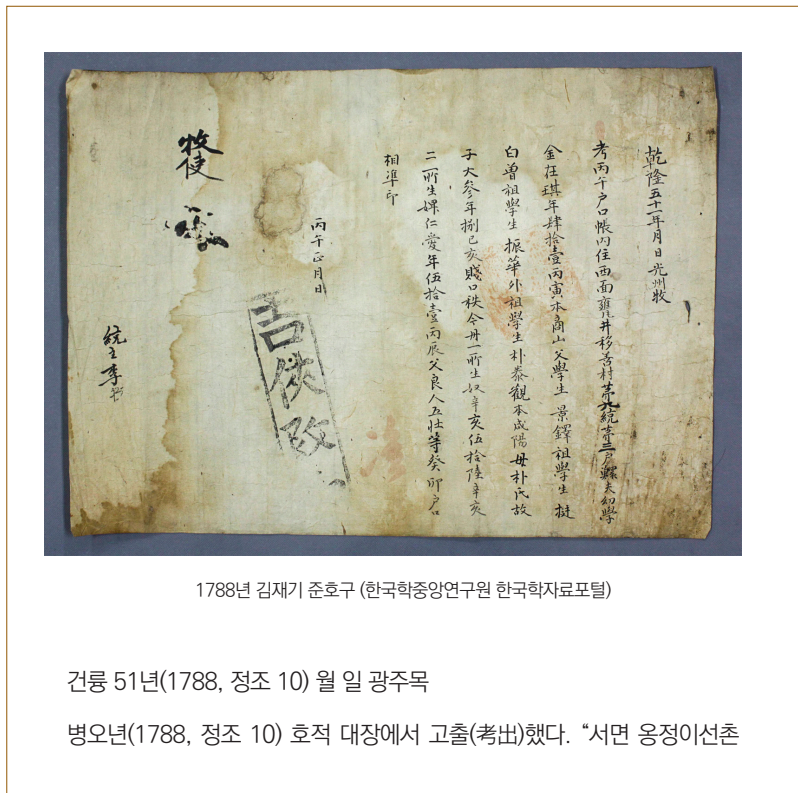 乾隆五十一年月日光州牧
考丙午戶口帳內住西面甕井移善村第九統第三戶鰥夫幼學
金在琪年肆拾壹丙寅本商山父學生 景鐸祖學生 挺
白曾祖學生 振華外祖學生朴泰觀本咸陽母朴氏故
子大參年捌己亥賤口秩今毋一所生奴辛亥伍拾陸辛亥
二所生婢仁愛年伍拾壹丙辰父良人五壯等癸卯戶口
相準印
丙午正月日
牧使
統主李
1788년 김재기 준호구 (한국학중앙연구원 한국학자료포털)
건륭 51년(1788, 정조 10) 월 일 광주목
병오년(1788, 정조 10) 호적 대장에서 고출(考出)했다. “서면 옹정이선촌